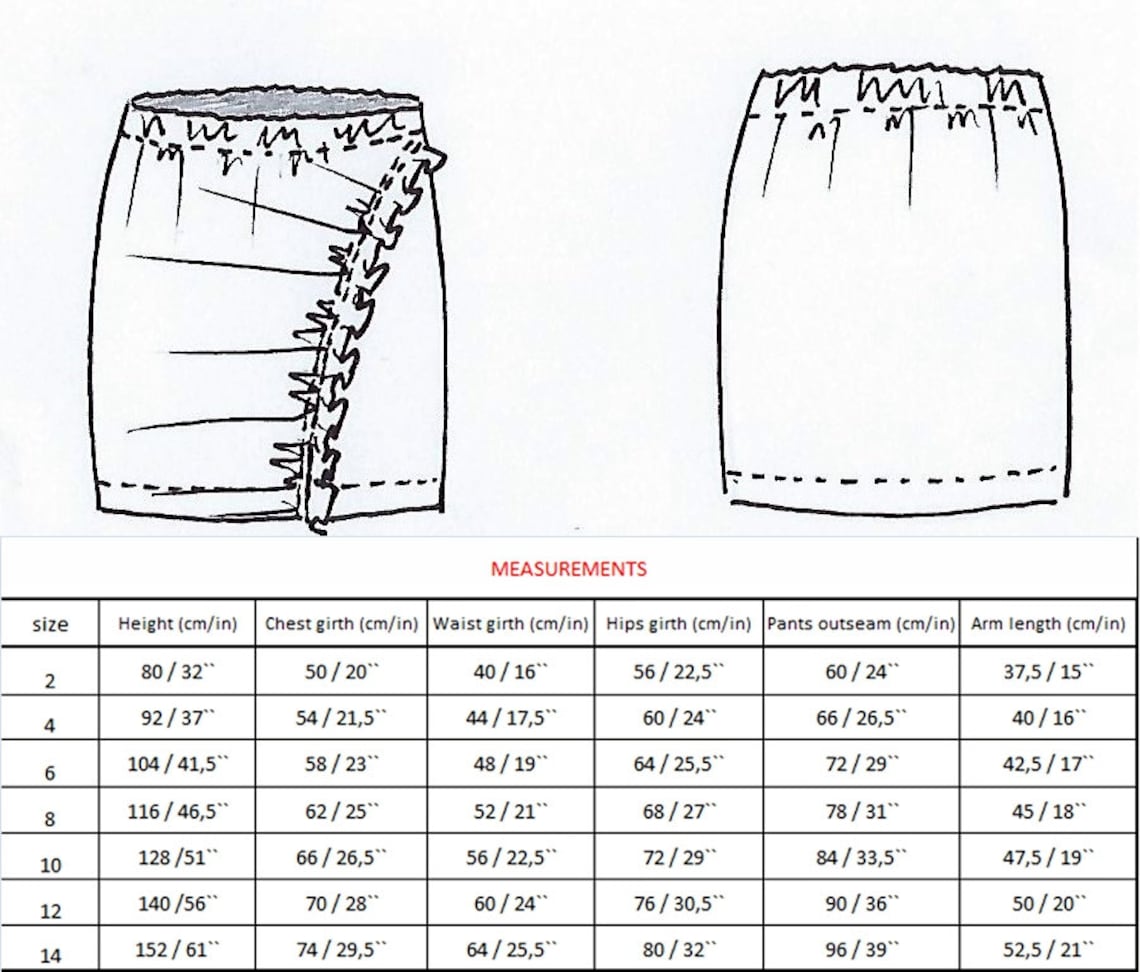 MEASUREMENTS
size Height (cm/in) Chest girth (cm/in) Waist girth (cm/in) Hips girth (cm/in) Pants outseam (cm/in) Arm length (cm/in)
2 80 / 32`` 50 / 20`` 40 / 16`` 56 / 22,5`` 60 / 24`` 37,5 / 15``
4 92 / 37`` 54 / 21,5`` 44 / 17,5`` 60 / 24`` 66 / 26,5`` 40 / 16``
6 104 / 41,5`` 58 / 23`` 48 / 19`` 64 / 25,5`` 72 / 29`` 42,5 / 17``
8 116 / 46,5`` 62 / 25`` 52 / 21`` 68 / 27`` 78 / 31`` 45 / 18``
10 128 /51`` 66 / 26,5`` 56 / 22,5`` 72 / 29`` 84 / 33,5`` 47,5 / 19``
12 140 /56`` 70 / 28`` 60 / 24`` 76 / 30,5`` 90 / 36`` 50 / 20``
14 152 / 61`` 74 / 29,5`` 64 / 25,5`` 80 / 32`` 96 / 39`` 52,5 / 21``